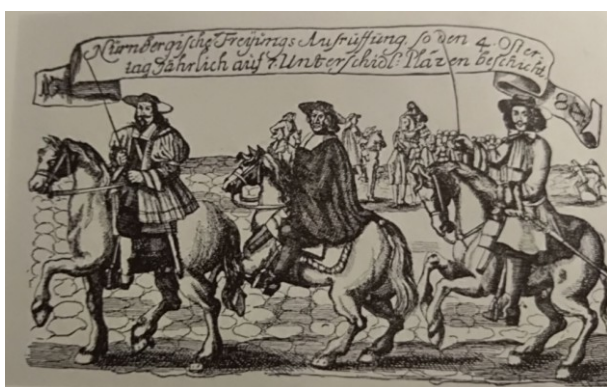 Nürnbergische Freyungs Ausrüffung, so den 4. Oster,
tag Jährlich auf 7. Unterschidl: Pläzen beschicht